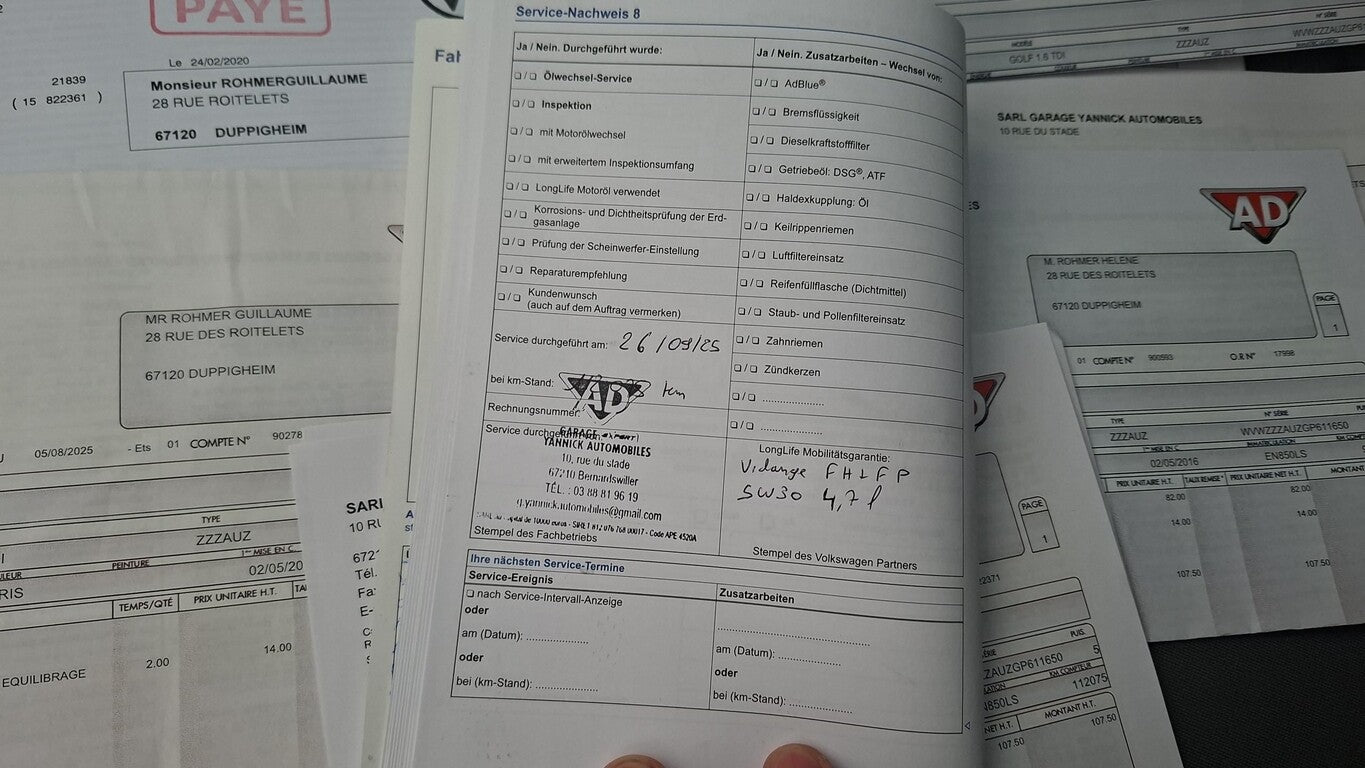 PAYE
Le 24/02/2020
21839
( 15 822361 )
Monsieur ROHMERGUILLAUME
28 RUE ROITELETS
67120 DUPPIGHEIM
MR ROHMER GUILLAUME
28 RUE DES ROITELETS
67120 DUPPIGHEIM
05/08/2025 - Ets 01 COMPTE N° 90278
TYPE
ZZZAUZ
PEINTURE
1ère MISE EN C.
02/05/20
RIS
TEMPS/QTÉ
PRIX UNITAIRE H.T.
EQUILIBRAGE
2.00
14.00
SARL
10 RU
672
Tél.
Fa
E-
Fah
Service-Nachweis 8
Ja / Nein. Durchgeführt wurde:
❏/❏ Ölwechsel-Service
❏/❏ Inspektion
❏/❏ mit Motorölwechsel
❏/❏ mit erweitertem Inspektionsumfang
❏/❏ LongLife Motoröl verwendet
❏/❏ Korrosions- und Dichtheitsprüfung der Erd-
gasanlage
❏/❏ Prüfung der Scheinwerfer-Einstellung
❏/❏ Reparaturempfehlung
❏/❏ Kundenwunsch
(auch auf dem Auftrag vermerken)
Service durchgeführt am: 26/09/25
bei km-Stand: km
AD
Rechnungsnummer:
Service durchgeführt von
GARAGE expert
YANNICK AUTOMOBILES
10, rue du stade
67210 Bernardswiller
TÉL. : 03 88 81 96 19
g.yannick.automobiles@gmail.com
Stempel des Fachbetriebs
Ja / Nein. Zusatzarbeiten – Wechsel von:
❏/❏ AdBlue®
❏/❏ Bremsflüssigkeit
❏/❏ Dieselkraftstofffilter
❏/❏ Getriebeöl: DSG®, ATF
❏/❏ Haldexkupplung: Öl
❏/❏ Keilrippenriemen
❏/❏ Luftfiltereinsatz
❏/❏ Reifenfüllflasche (Dichtmittel)
❏/❏ Staub- und Pollenfiltereinsatz
❏/❏ Zahnriemen
❏/❏ Zündkerzen
❏/❏ .....................
❏/❏ .....................
LongLife Mobilitätsgarantie:
Vidange FHLFP
5W30 4,7 l
Stempel des Volkswagen Partners
Ihre nächsten Service-Termine
Service-Ereignis
❏ nach Service-Intervall-Anzeige
oder
am (Datum): ....................
oder
bei (km-Stand): ....................
Zusatzarbeiten
am (Datum): ....................
oder
bei (km-Stand): ....................
MODÈLE
GOLF 1.6 TDI
TYPE
ZZZAUZ
N° SÉRIE
WVWZZZAUZGP61
SARL GARAGE YANNICK AUTOMOBILES
10 RUE DU STADE
AD
M. ROHMER HELENE
28 RUE DES ROITELETS
67120 DUPPIGHEIM
PAGE
1
01 COMPTE N° 900593 O.R N° 17998
TYPE
ZZZAUZ
N° SÉRIE
WVWZZZAUZGP611650
1ère MISE EN C.
02/05/2016
IMMATRICULATION
EN850LS
PRIX UNITAIRE H.T.
TAUX REMISE
PRIX UNITAIRE NET H.T.
MONTANT
82.00
82.00
14.00
14.00
107.50
107.50
PAGE
1
22371
PUIS.
5
ZAUZGP611650
KM COMPTEUR
112075
N850LS
NET H.T.
MONTANT H.T.
107.50
107.50